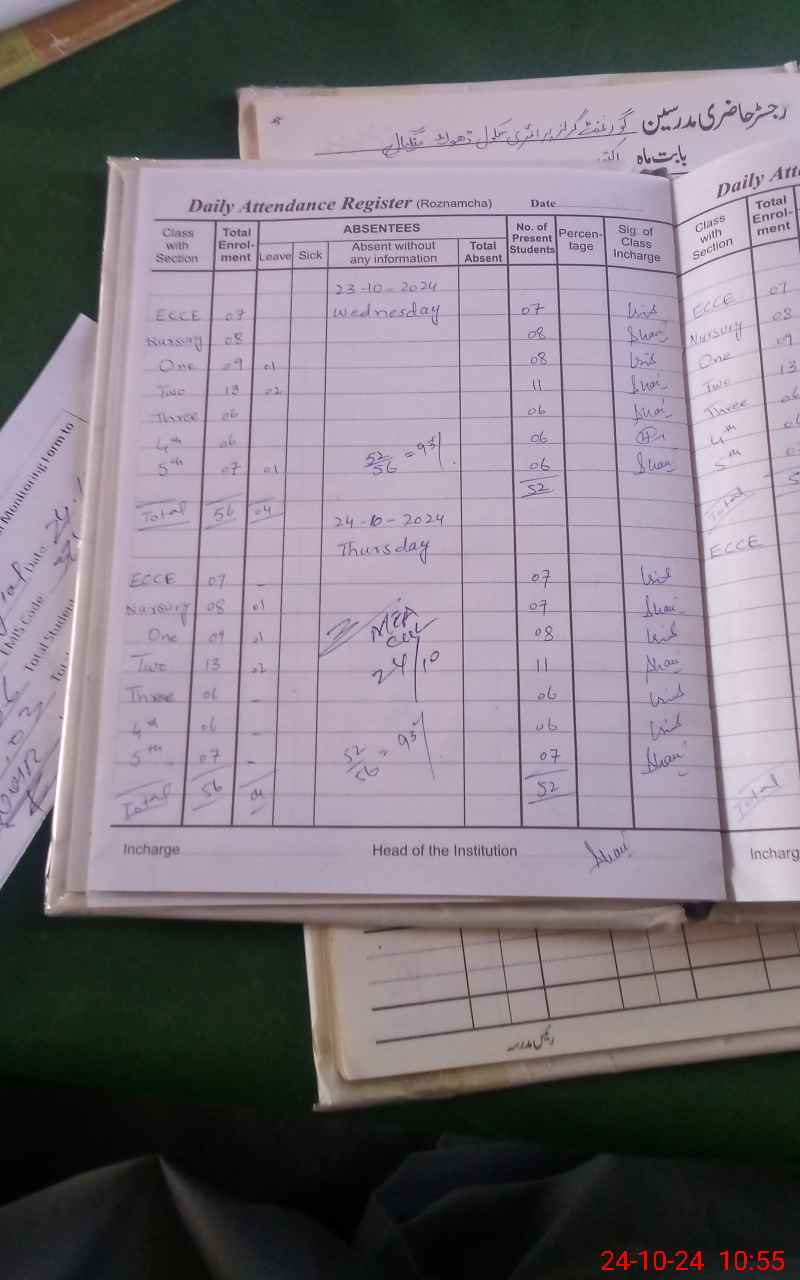 رجسٹر حاضری مدرسین گورنمنٹ گرلز پرائمری سکول ڈھوک
بابت ماہ
Daily Attendance Register (Roznamcha) Date
Class with Section Total Enrol-ment ABSENTEES No. of Present Students Percen-tage Sig. of Class Incharge
Leave Sick Absent without any information Total Absent
23-10-2024
ECCE 07 Wednesday 07
Nursury 08 08
One 09 01 08
Two 13 02 11
Three 06 06
4th 06 06
5th 07 01 52/56 = 93% 06
52
Total 56 04 24-10-2024
Thursday
ECCE 07 - 07
Nursury 08 01 07
One 09 01 08
Two 13 02 24/10 11
Three 06 - 06
4th 06 - 06
5th 07 - 52/56 = 93% 07
Total 56 04 52
Incharge Head of the Institution
Daily Atte
Class with Section Total Enrol-ment
ECCE 07
Nursury 08
One 09
Two 13
Three 06
4th
5th
Total
ECCE
Total
Incharg
Monitoring Form to
Date
EMIS Code
Total Student
رئیس مدرسہ
24-10-24 10:55